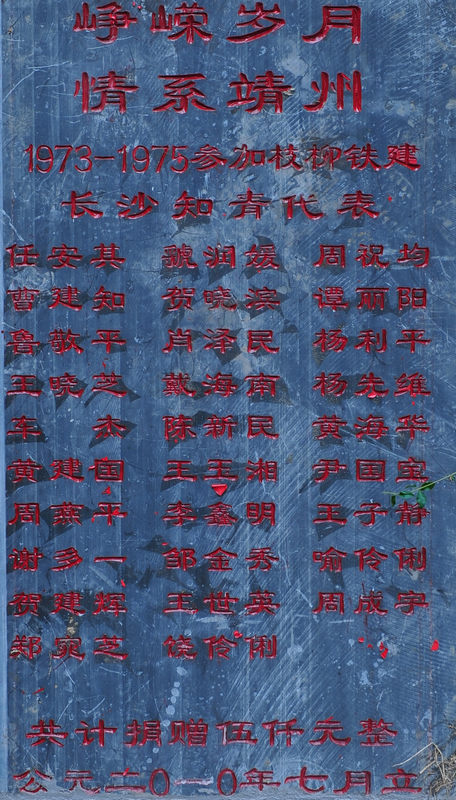 峥嵘岁月
情系靖州
1973-1975参加枝柳铁建
长沙知青代表
任安其 虢润媛 周祝均
曹建知 贺晓滨 谭丽阳
鲁敬平 肖泽民 杨利平
王晓芝 戴海南 杨先维
车杰 陈新民 黄海华
黄建国 王玉湘 尹国宝
周燕平 李鑫明 王子静
谢多一 邹金秀 喻伶俐
贺建辉 王世英 周成宇
郑宛芝 饶伶俐
共计捐赠伍仟元整
公元二0一0年七月立